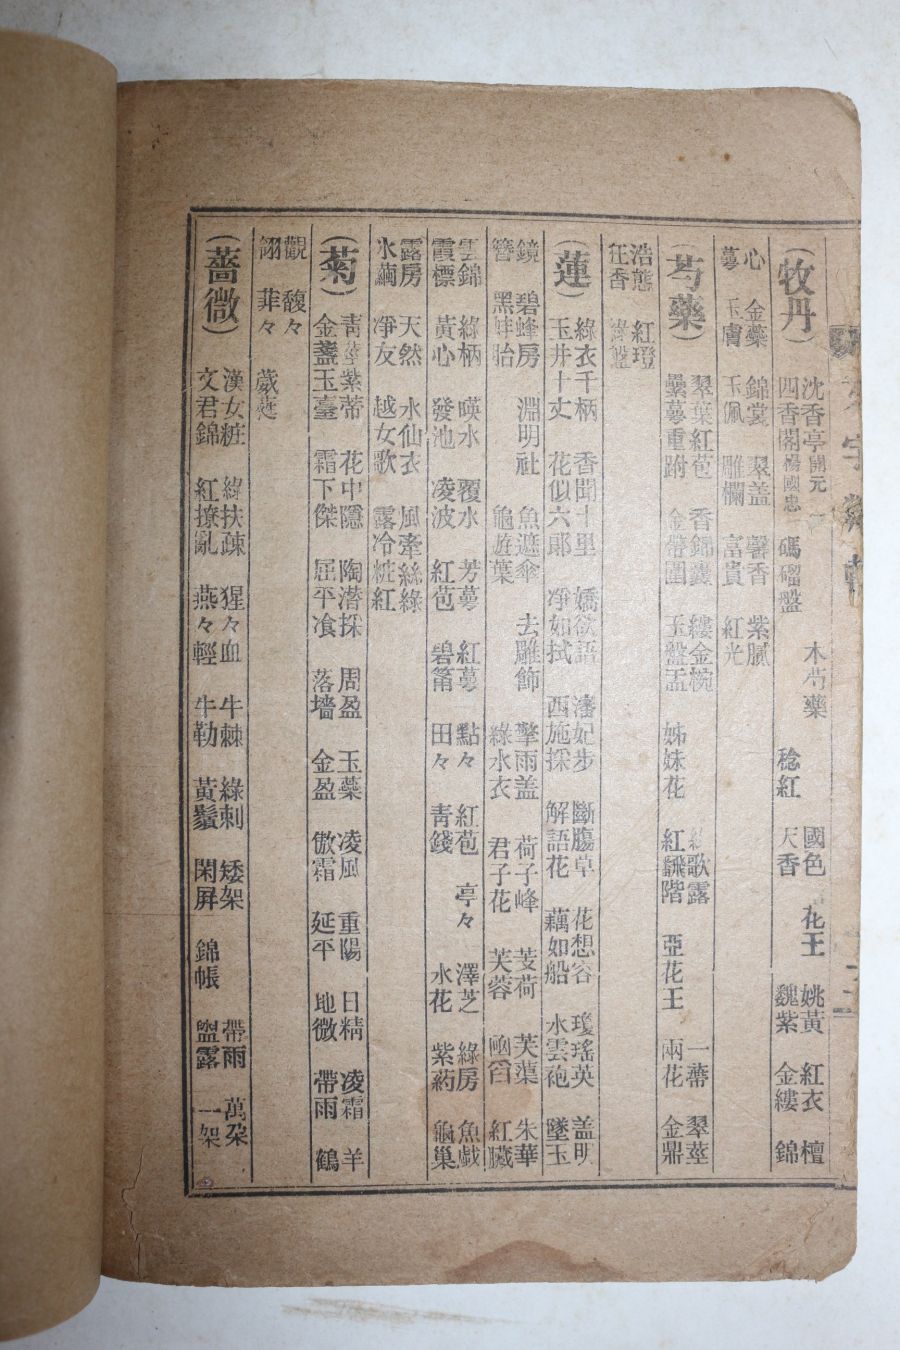 (牧丹)
沈香亭開元 木芍藥 國色 花王 姚黃 紅衣 檀
四香閣楊國忠 碼磂盤 稔紅 天香 魏紫 金縷 錦
心 金藥 錦裳 翠盖 馨香 紫膩
萼 玉膚 玉佩 雕欄 富貴 紅光
(芍藥)
翠葉紅苞 香錦囊 縷金椀 歌露 一蔕 翠莖
疊萼重跗 金帶圍 玉盤盂 姊妹花 紅飜階 亞花王 兩花 金鼎
浩態 紅燈
狂香 綠盤
(蓮)
綠衣千柄 香聞十里 嬌欲語 潘妃步 斷膓草 花想容 瓊瑤英 盖明
玉井十丈 花似六郞 凈如拭 西施採 解語花 藕如船 水雲砲 墜玉
鏡 碧蜂房 淵明社 魚遮傘 去雕飾 擎雨盖 荷子峰 芰荷 芙蕖 朱華
簪 黑蚌胎 龜遊葉 綠水衣 君子花 芙蓉 菡萏 紅臓
雲錦 綠柄 暎水 覆水 芳萼 紅萼 點々 紅苞 亭々 澤芝 綠房 魚戱
霞標 黃心 發池 凌波 紅苞 碧筩 田々 靑錢 水花 紫菂 龜巢
露房 天然 水仙衣 風牽絲綠
氷繭 凈友 越女歌 露冷粧紅
(菊)
靑莖紫蒂 花中隱 陶潛採 周盈 玉藥 凌風 重陽 日精 凌霜 羊
金盞玉臺 霜下傑 屈平飡 落墻 金盈 傲霜 延平 地微 帶雨 鶴
觀 馥々
翎 菲々 葳蕤
(薔微)
漢女粧 綠扶疎 猩々血 牛棘 綠刺 矮架 帶雨 萬朶
文君錦 紅撩亂 燕々輕 牛勒 黃鬚 閑屛 錦帳 盥露 一架